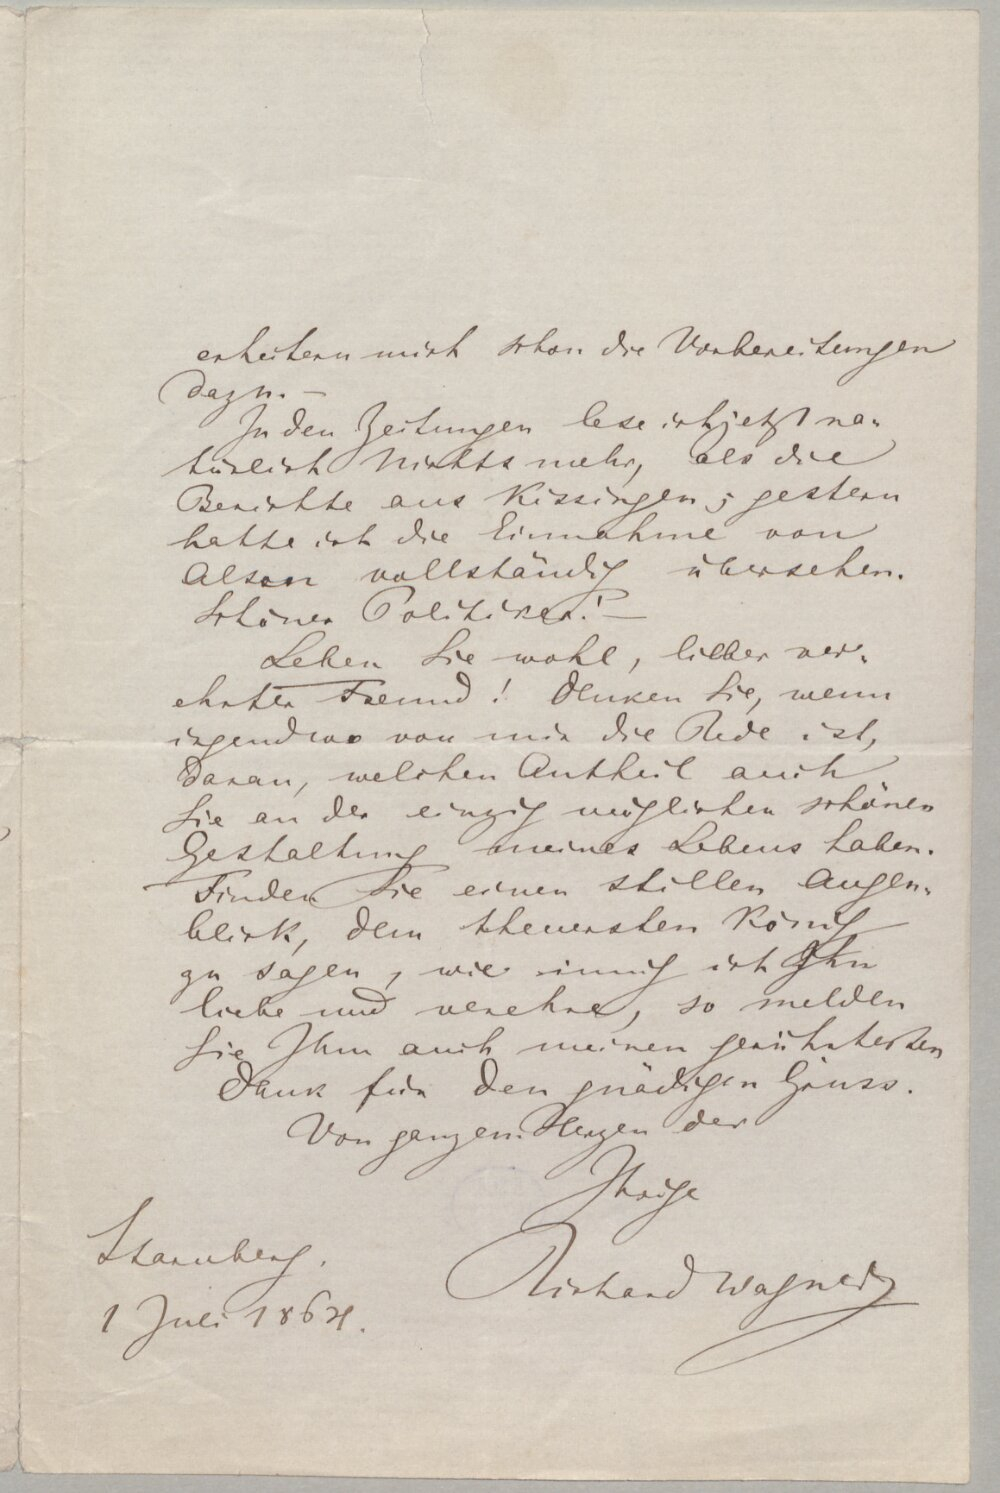 erheitern mich schon die Vorbereitungen
dazu. —
In den Zeitungen lese ich jetzt na-
türlich Nichts mehr, als die
Berichte aus Kissingen; gestern
hatte ich die Einnahme von
Alsen vollständig übersehen.
Schöner Politiker! —
Leben Sie wohl, lieber ver-
ehrter Freund! Denken Sie, wenn
irgendwo von mir die Rede ist,
daran, welchen Antheil auch
Sie an der einzig möglichen schönen
Gestaltung meines Lebens haben.
Finden Sie einen stillen Augen-
blick, dem theuersten König
zu sagen, wie innig ich Ihn
liebe und verehre, so melden
Sie Ihm auch meinen gerührtesten
Dank für den gnädigen Gruss.
Von ganzem Herzen der
Ihrige
Richard Wagner
Starnberg.
1 Juli 1864.